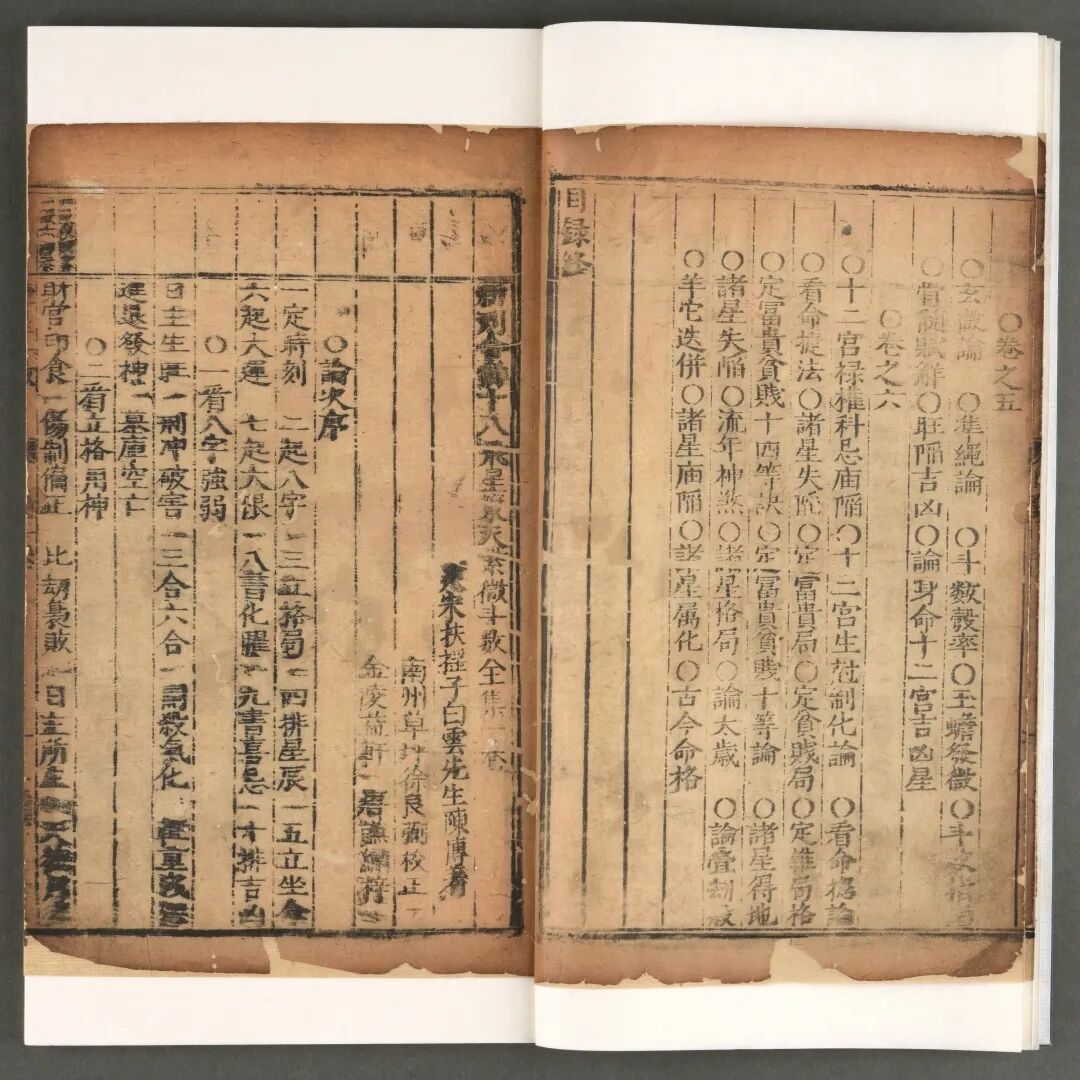 ○卷之五
○玄微論 ○準繩論 ○斗數彀率○玉蟾發微○斗數
○骨髓賦解○旺陷吉凶○論身命十二宮吉凶星
○卷之六
○十二宮禄權科忌庙陷○十二宮生尅制化論 ○看命總論
○看命捷法○諸星失陷○定富貴局○定貧賤局○定雜局格
○定富貴貧賤十四等訣○定富貴貧賤十等論 ○諸星得地
○諸星失陷○流年神煞○諸星格局○論太歲 ○論疊劫
○羊它迭併○諸星庙陷○諸星属化○古今命格
目録終
新刊合
十八
星
天紫微斗数全集 卷
宋扶摇子白雲先生陳摶著
南州草坪徐良弼校正
金陵
○論次序
一定時刻 二起八字 三立葬局 四排星辰 五立坐命
六起大運 七起大限 八書化曜 九書喜忌 十排吉凶
○一看八字強弱
日主生旺 刑冲破害 三合六合 化
進退發神 墓庫空亡
○二看立格用神
財官印食 傷制偏正 比刼梟敗 日主所生